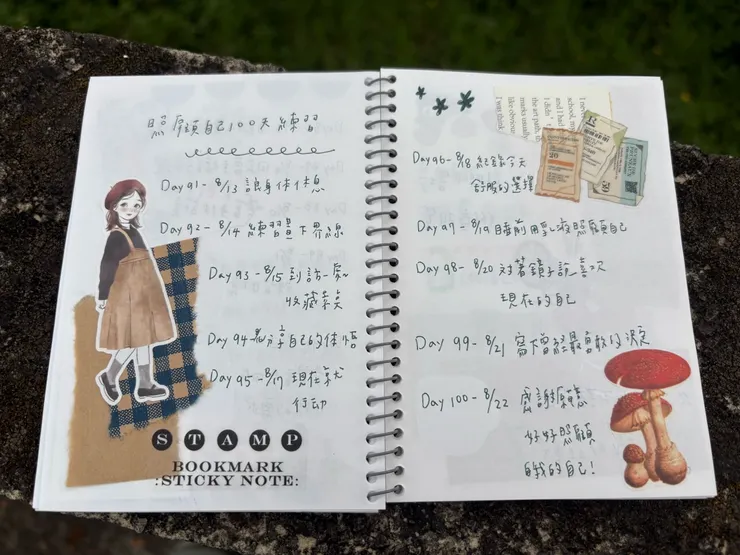 照顧自己100天練習
Day 91 - 8/13 讓身体休息
Day 92 - 8/14 練習畫下界線
Day 93 - 8/15 到訪一處
收藏素美
Day 94 分享自己的体悟
Day 95 - 8/17 現在就
行动
STAMP
BOOKMARK
:STICKY NOTE:
Day 96 - 8/18 紀錄今天
舒服的選擇
Day 97 - 8/19 睡前用乳液照顧自己
Day 98 - 8/20 对著鏡子說喜欢
現在的自己
Day 99 - 8/21 寫曾經最勇敢的決定
Day 100 - 8/22 感謝願意
好好照顧
自我的自己！
20
50